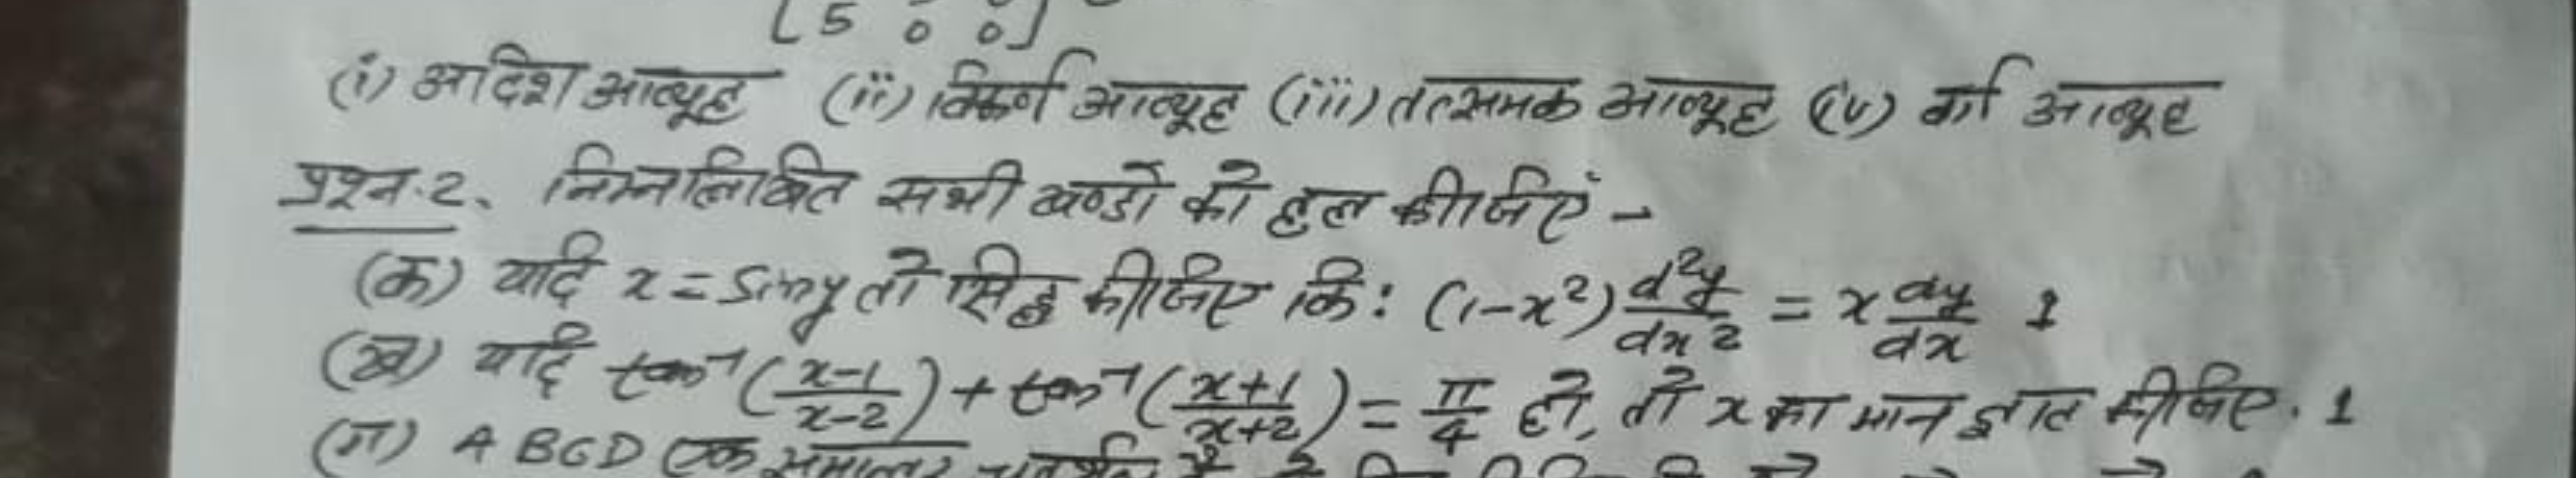 [5 0 0]
(i) अदिश आव्यूह (ii) विकर्ण आव्यूह (iii) तत्समक आव्यूह (iv) वर्ग आव्यूह
प्रश्न.2. निम्नलिखित सभी खण्डों को हल कीजिए -
(क) यदि x = Siny तो सिद्ध कीजिए कि: (1-x²) d²y/dx² = x dy/dx 1
(ख) यदि tan⁻¹(x-1/x-2) + tan⁻¹(x+1/x+2) = π/4 हो, तो x का मान ज्ञात कीजिए. 1
(ग) ABCD एक समान्तर चतुर्भुज है